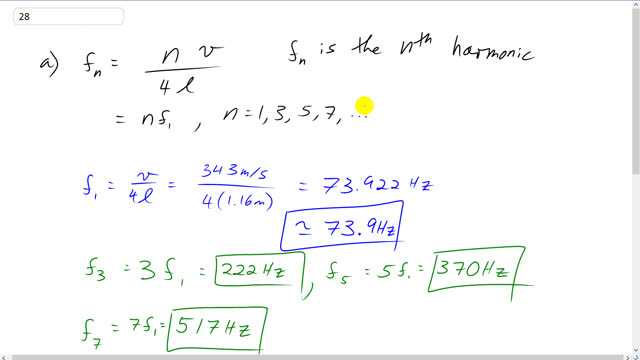 28
a) fₙ = n v / 4 l    fₙ is the nᵗʰ harmonic
= n f₁ , n = 1, 3, 5, 7, ...
f₁ = v / 4 l = 343 m/s / 4 (1.16 m) = 73.922 Hz
≃ 73.9 Hz
f₃ = 3 f₁ = 222 Hz , f₅ = 5 f₁ = 370 Hz
f₇ = 7 f₁ = 517 Hz